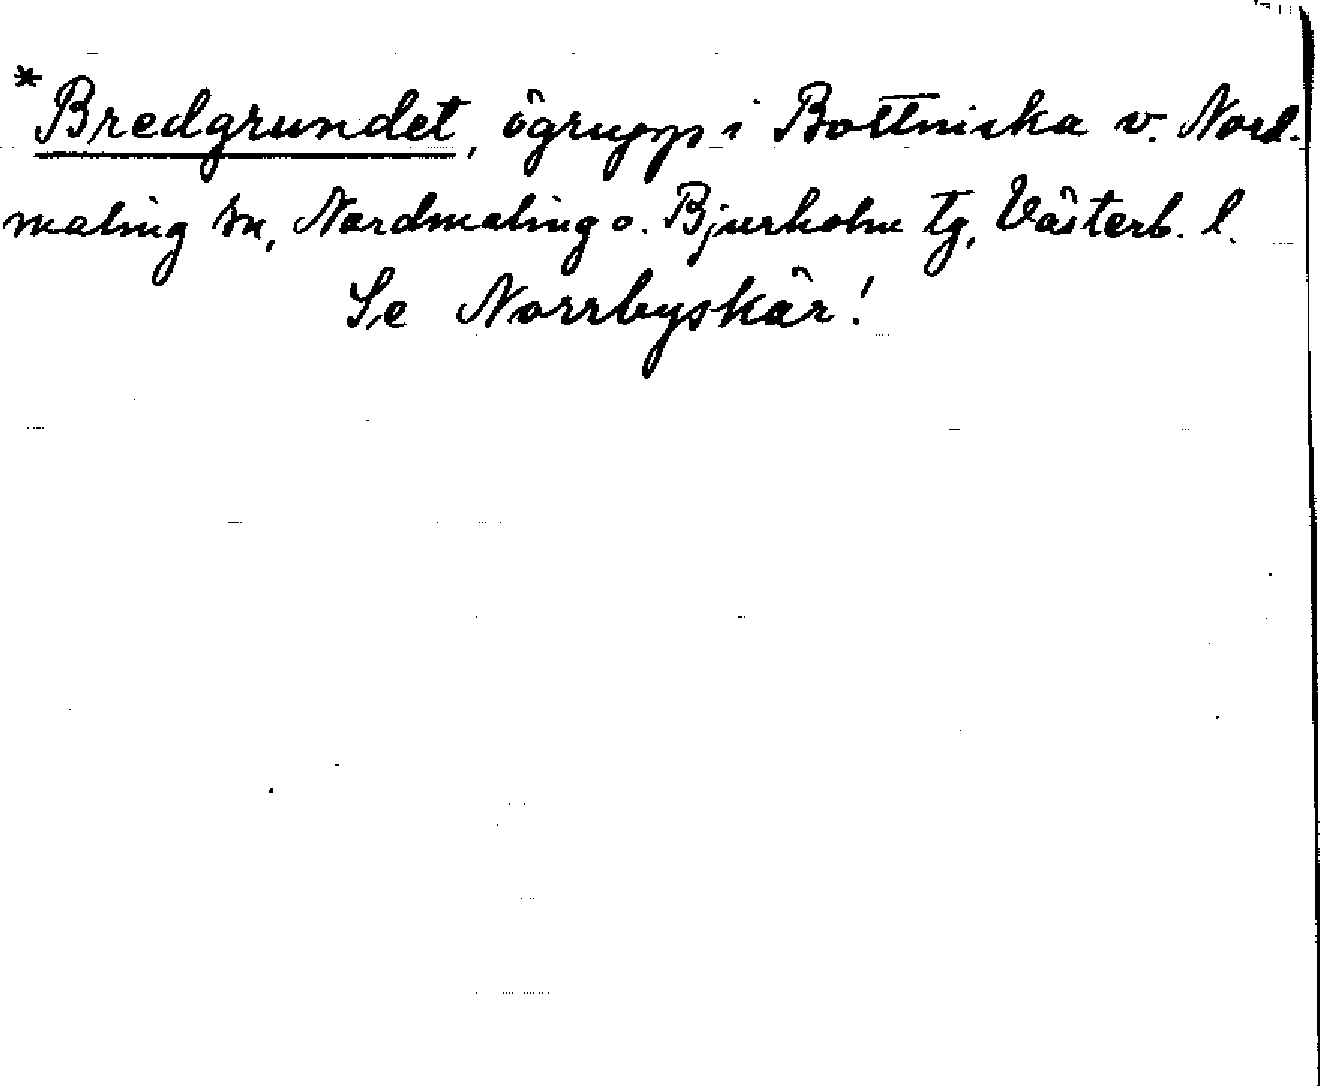 *Bredgrundet, ögrupp i Bottniska v. Nord-
maling sn, Nordmaling o. Bjurholm tg, Västerb. l.
Se Norrbyskär!